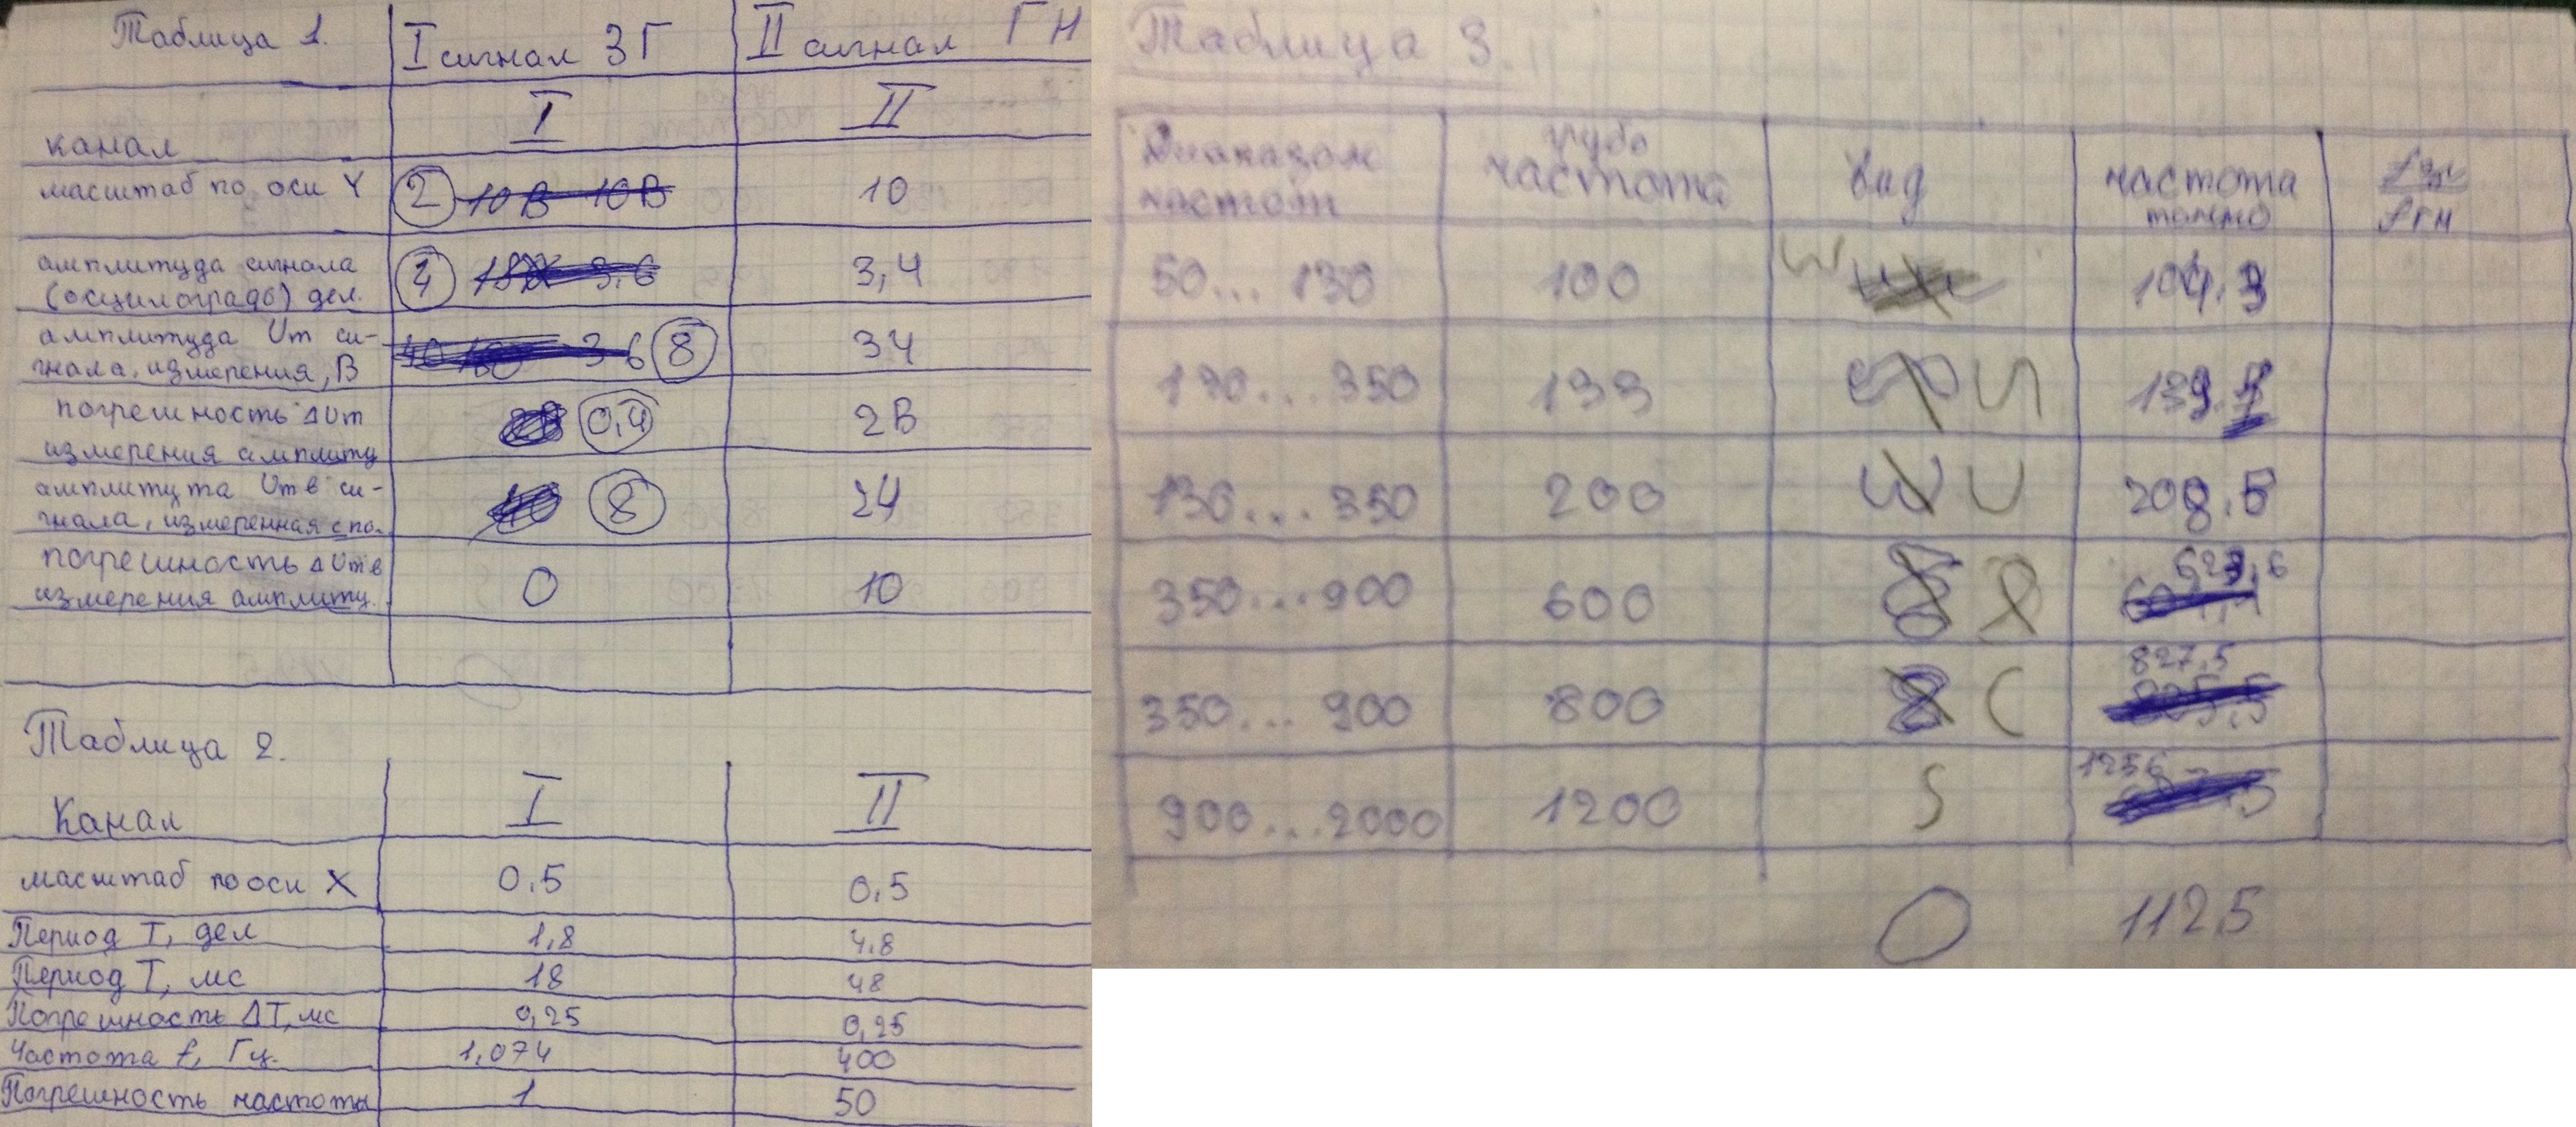 Таблица 1. I сигнал ЗГ II сигнал ГН
канал I II
масштаб по оси Y 2 10В 10В 10
амплитуда сигнала
(осцилограф) дел. 4 3,6 3,4
амплитуда Um си-
гнала, измерения, В 3 6 8 34
погрешность ΔUm
измерения амплиту 0,4 2В
амплитута Umв си-
гнала, измеренная спо. 8 24
погрешность ΔUmв
измерения амплиту. 0 10
Таблица 2.
Канал I II
масштаб по оси X 0.5 0,5
Период T, дел 1,8 4,8
Период T, мс 18 48
Погрешность ΔT, мс 0,25 0,25
Частота f, Гц. 1,074 400
Погрешность частоты 1 50
Таблица 3.
Диапазон
частот
грубо
частота
Вид
частота
точно
fзг
fгн
50... 130 100 104.3
130...350 133 139.
130...350 200 208.5
350...900 600 623,6
350... 900 800 827,5
805,5
900...2000 1200 1256
112,5